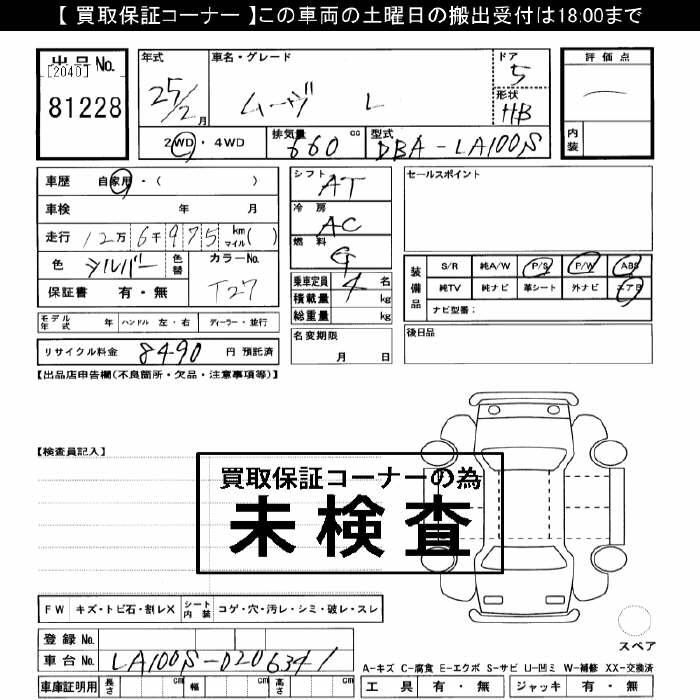 【 買取保証コーナー 】この車両の土曜日の搬出受付は18:00まで
出品 No.
[2040]
81228
年式
25/2月
車名・グレード
ムーヴ L
ドア
5
形状
HB
評価点
内装
2WD・4WD
排気量
660 cc
型式
DBA-LA100S
車歴 自家用・( )
車検 年 月
走行 12万6千975 km マイル( )
色 シルバー 色替
カラーNo.
T27
保証書 有・無
シフト
AT
冷房
AC
燃料
G
乗車定員 4 名
積載量 kg
総重量 kg
セールスポイント
装備品
S/R 純A/W P/S P/W ABS
純TV 純ナビ 革シート 外ナビ エアB
ナビ型番:
モデル年式 年 ハンドル 左・右 ディーラー・並行
名変期限
月 日
後日品
リサイクル料金 8490 円 預託済
【出品店申告欄(不良箇所・欠品・注意事項等)】
【検査員記入】
買取保証コーナーの為
未検査
FW キズ・トビ石・割レX シート内装 コゲ・穴・汚レ・シミ・破レ・スレ
スペア
登録 No.
車台 No. LA100S-0206341
A-キズ C-腐食 E-エクボ S-サビ U-凹ミ W-補修 XX-交換済
車庫証明用 長さ cm 幅 cm 高さ cm
工具 有・無 ジャッキ 有・無